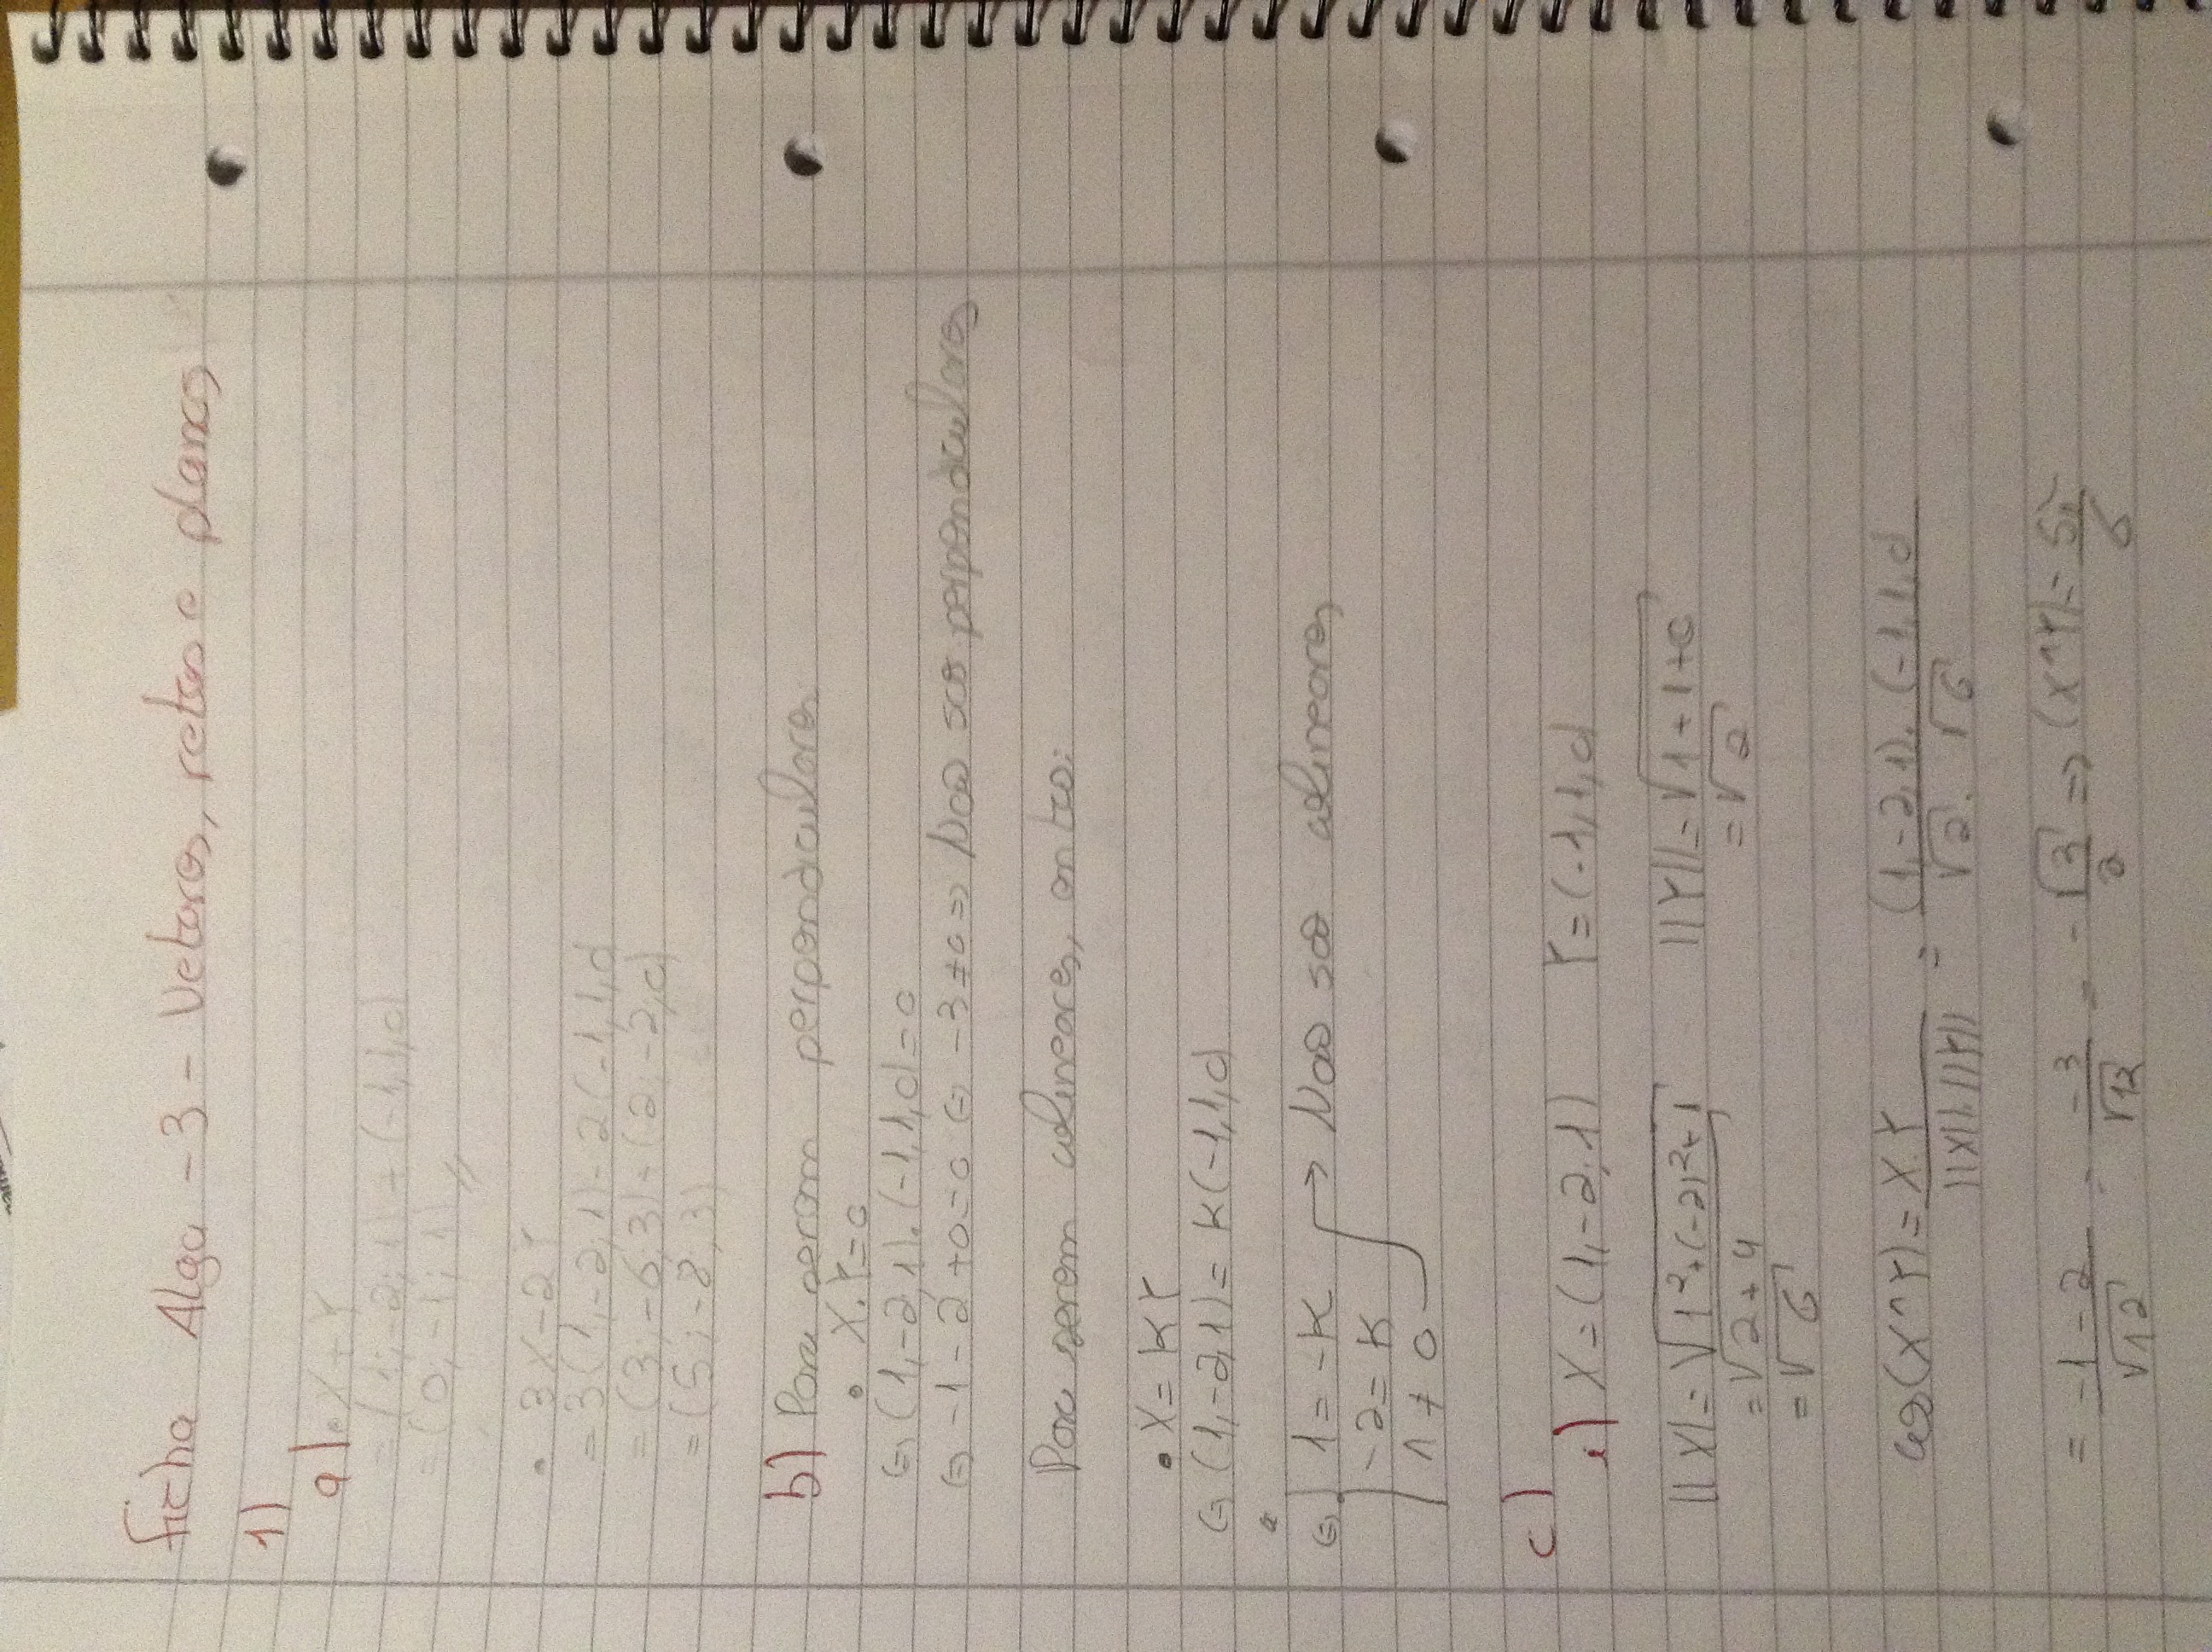 Ficha Alga - 3 - Vetores, retas e planos
1)
a) • X + Y
= (1; -2; 1) + (-1, 1, 0)
= (0, -1; 1) //
• 3X - 2Y
= 3(1, -2, 1) - 2(-1, 1, 0)
= (3; -6, 3) + (2; -2, 0)
= (5; -8, 3)
b) Para serem perpendiculares
• X.Y = 0
⇔ (1, -2, 1).(-1, 1, 0) = 0
⇔ -1 - 2 + 0 = 0 ⇔ -3 ≠ 0 ⇒ Não são perpendiculares
Para serem colineares, então:
• X = KY
⇔ (1, -2, 1) = K(-1, 1, 0)
⇔ { 1 = -K → Não são colineares
-2 = K
1 ≠ 0
c)
i) X = (1, -2, 1) Y = (-1, 1, 0)
||X| = √(1² + (-2)² + 1) ||Y|| = √(1 + 1 + 0)
= √(2 + 4) = √2
= √6
cos(X^Y) = X.Y / ||X||.||Y|| = (1, -2, 1).(-1, 1, 0) / √2 . √6
= -1 - 2 / √12 = -3 / √12 = -√3 / 2 ⇒ (X^Y) = 5π / 6